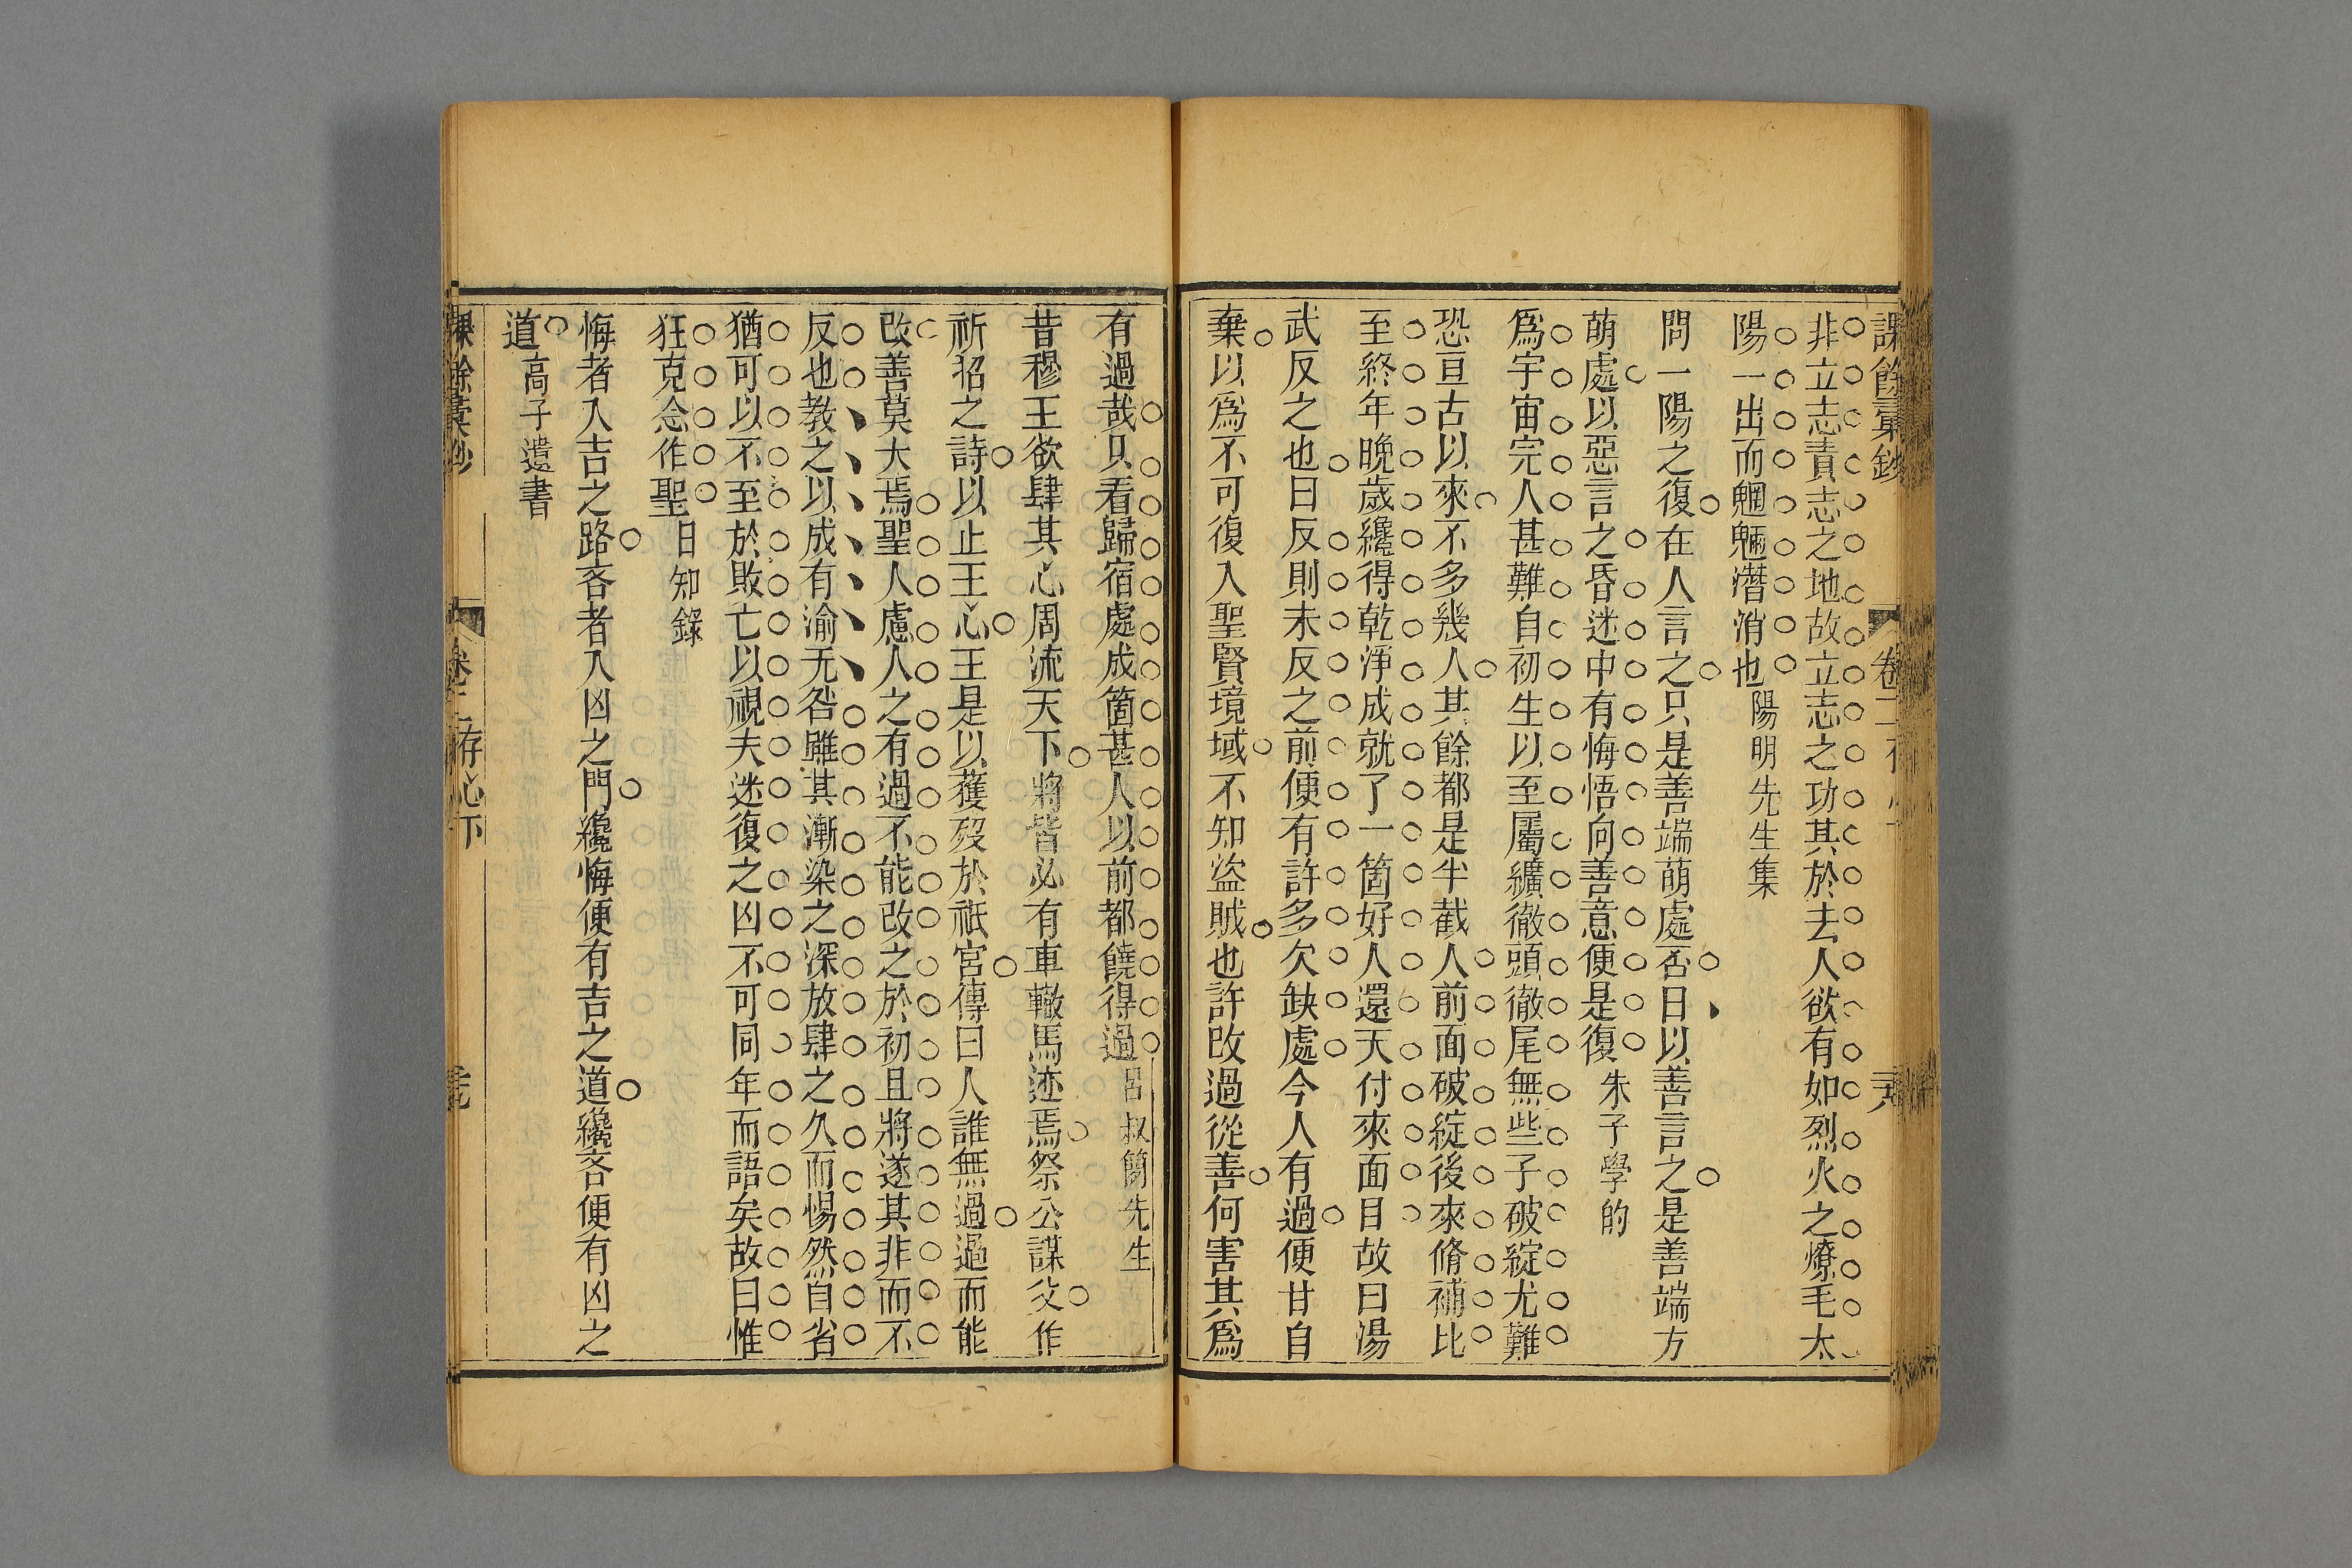 課餘彙鈔
卷二
非立志責志之地故立志之功其於去人欲有如烈火之燎毛太
陽一出而魍魎潛消也陽明先生集
問一陽之復在人言之只是善端萌處否曰以善言之是善端方
萌處以惡言之昏迷中有悔悟向善意便是復朱子學的
爲宇宙完人甚難自初生以至屬纊徹頭徹尾無些子破綻尤難
恐亘古以來不多幾人其餘都是半截人前面破綻後來脩補比
至終年晚歲纔得乾淨成就了一箇好人還天付來面目故曰湯
武反之也曰反則未反之前便有許多欠缺處今人有過便甘自
棄以爲不可復入聖賢境域不知盜賊也許改過從善何害其爲
有過哉只看歸宿處成箇甚人以前都饒得過呂叔簡先生
昔穆王欲肆其心周流天下將皆必有車轍馬迹焉祭公謀父作
祈招之詩以止王心王是以獲歿於祇宮傳曰人誰無過過而能
改善莫大焉聖人慮人之有過不能改之於初且將遂其非而不
反也教之以成有渝无咎雖其漸染之深放肆之久而惕然自省
猶可以不至於敗亡以視夫迷復之凶不可同年而語矣故曰惟
狂克念作聖日知錄
悔者入吉之路吝者入凶之門纔悔便有吉之道纔吝便有凶之
道高子遺書
課餘彙鈔
卷二存心下